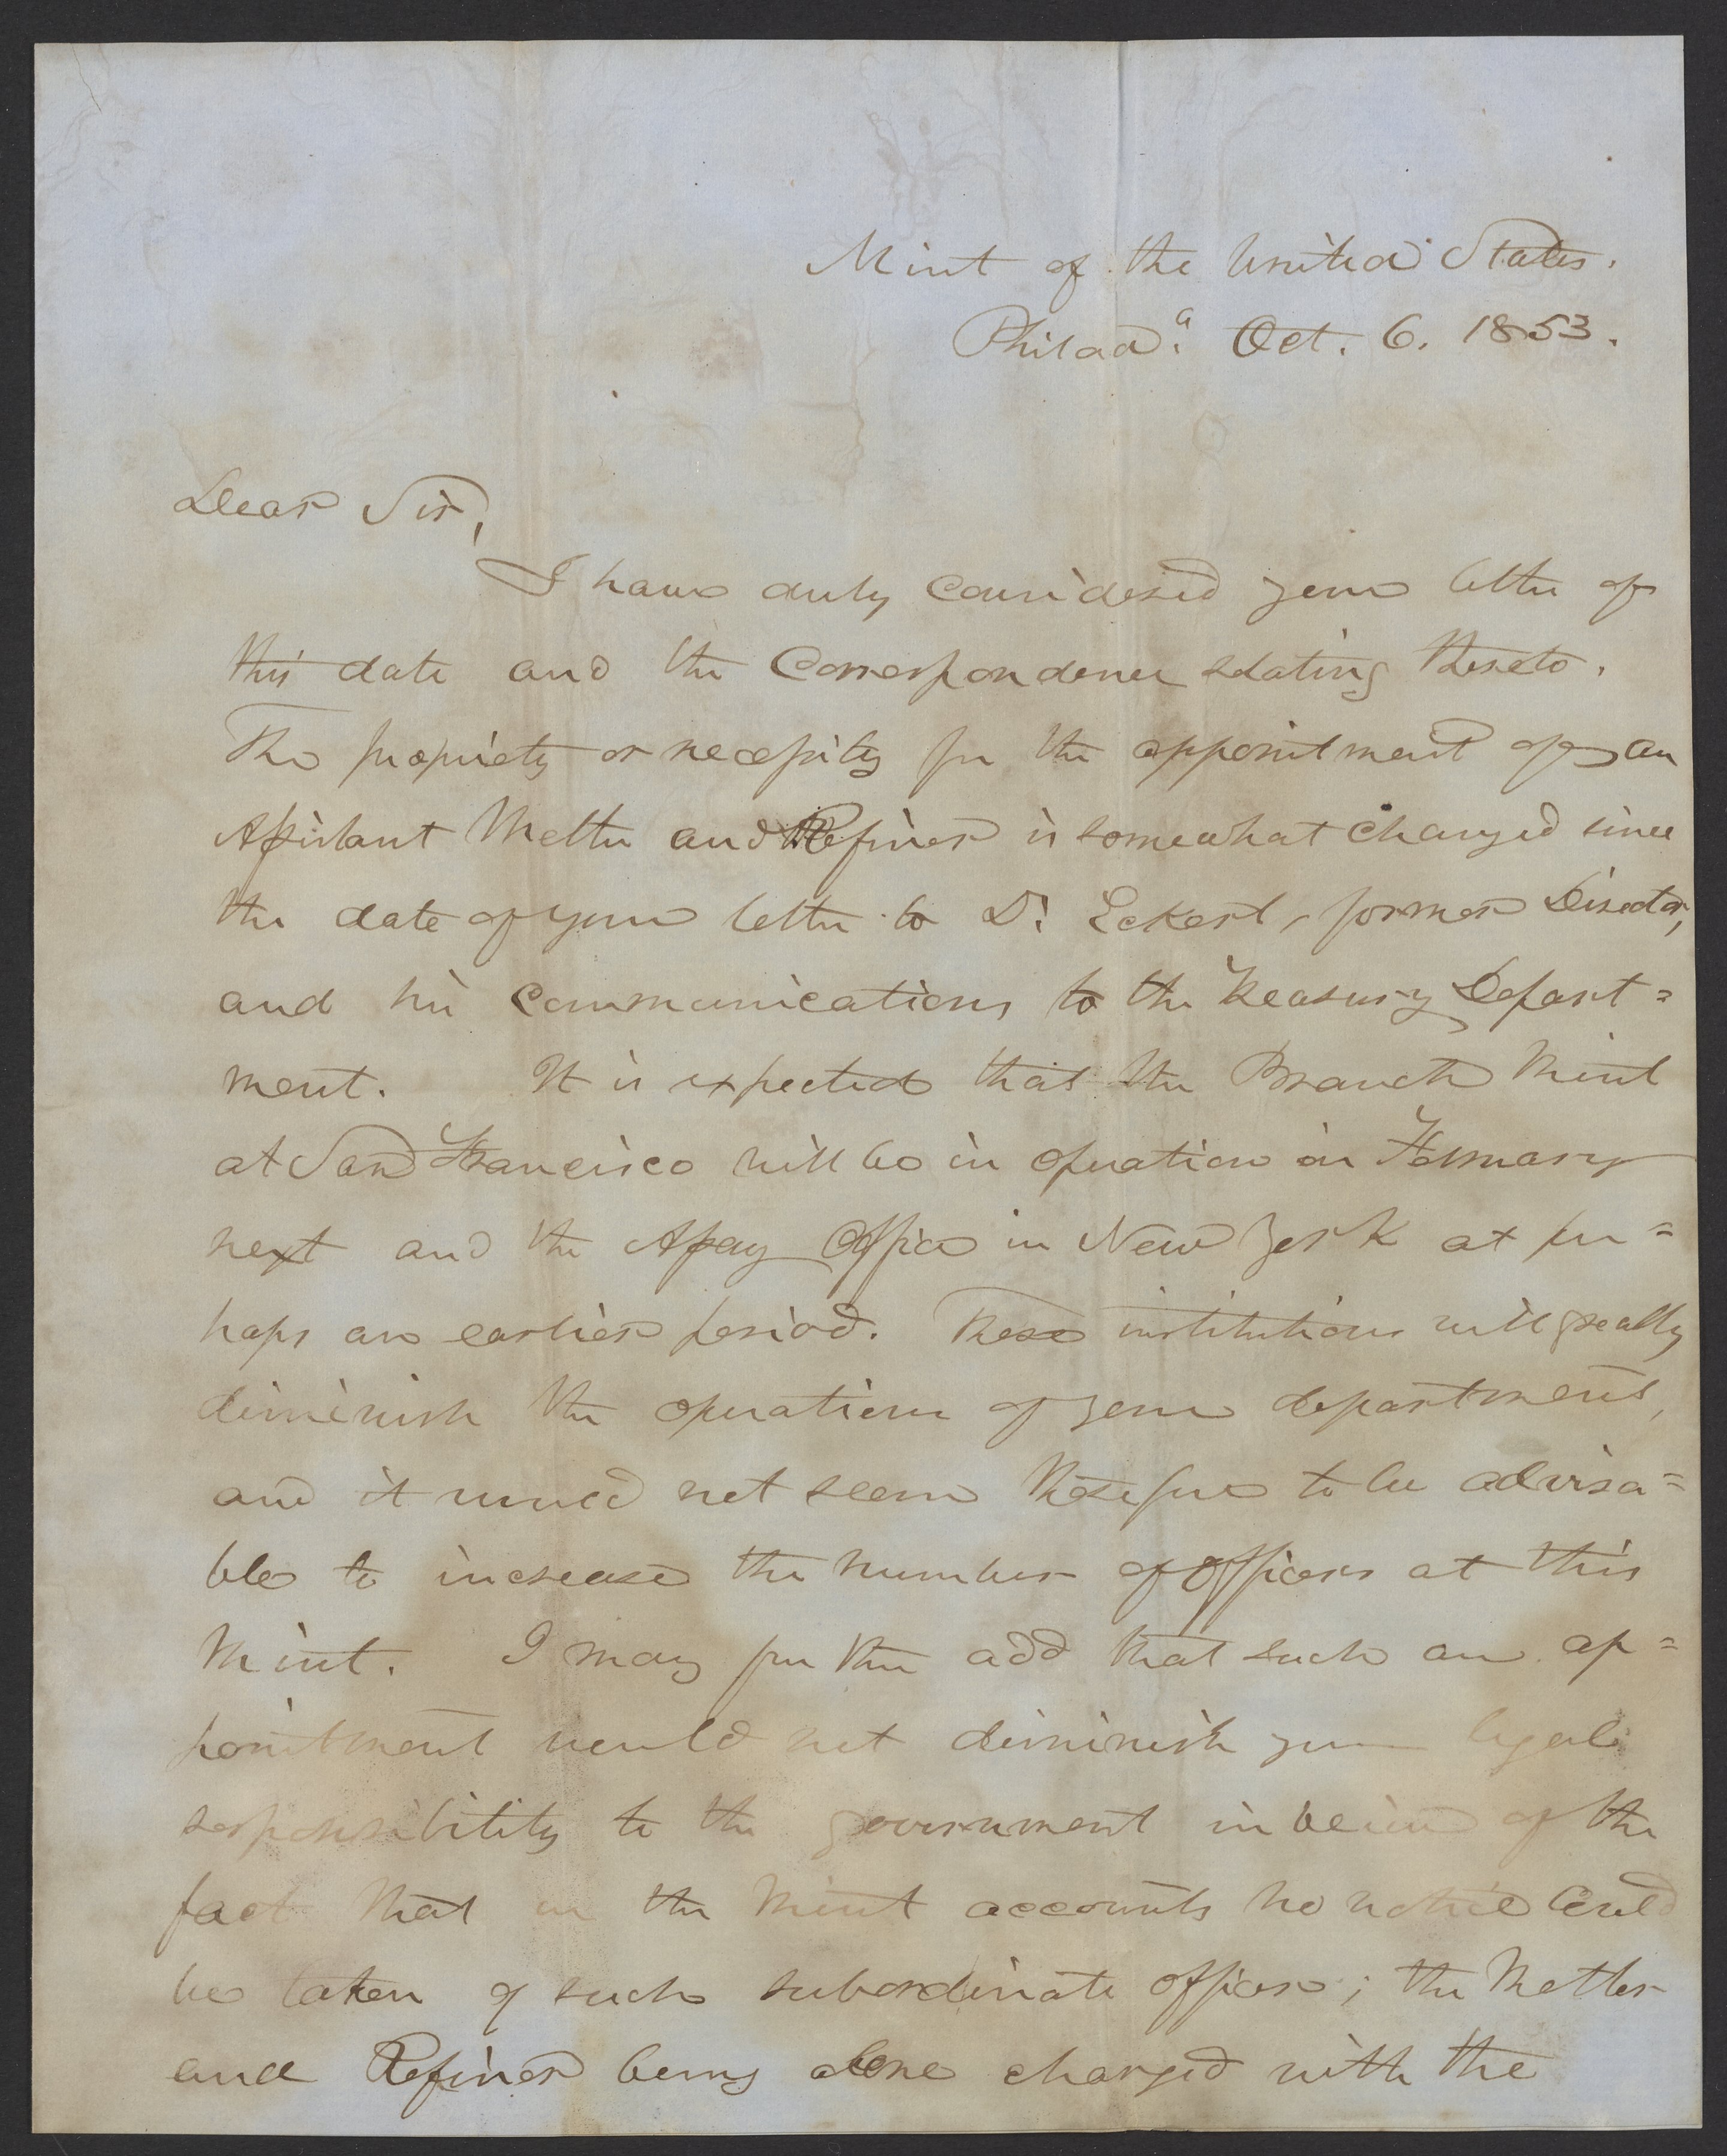 Mint of the United States.
Philad.a Oct. 6. 1853.
Dear Sir,
I have duly considered your letter of
this date and the Correspondence relating thereto.
The propriety or necessity for the appointment of an
Assistant Melter and Refiner is somewhat changed since
the date of your letter to Dr. Eckert, former Director,
and his communications to the Treasury Depart=
ment. It is expected that the Branch Mint
at San Francisco will be in operation in February
next and the Assay Office in New York at per=
haps an earlier period. These institutions will greatly
diminish the operations of your department,
and it would not seem therefore to be advisa=
ble to increase the number of officers at this
Mint. I may further add that such an ap=
pointment would not diminish your legal
responsibility to the government in view of the
fact that in the Mint accounts no notice could
be taken of such subordinate officer; the Melter
and Refiner being alone charged with the